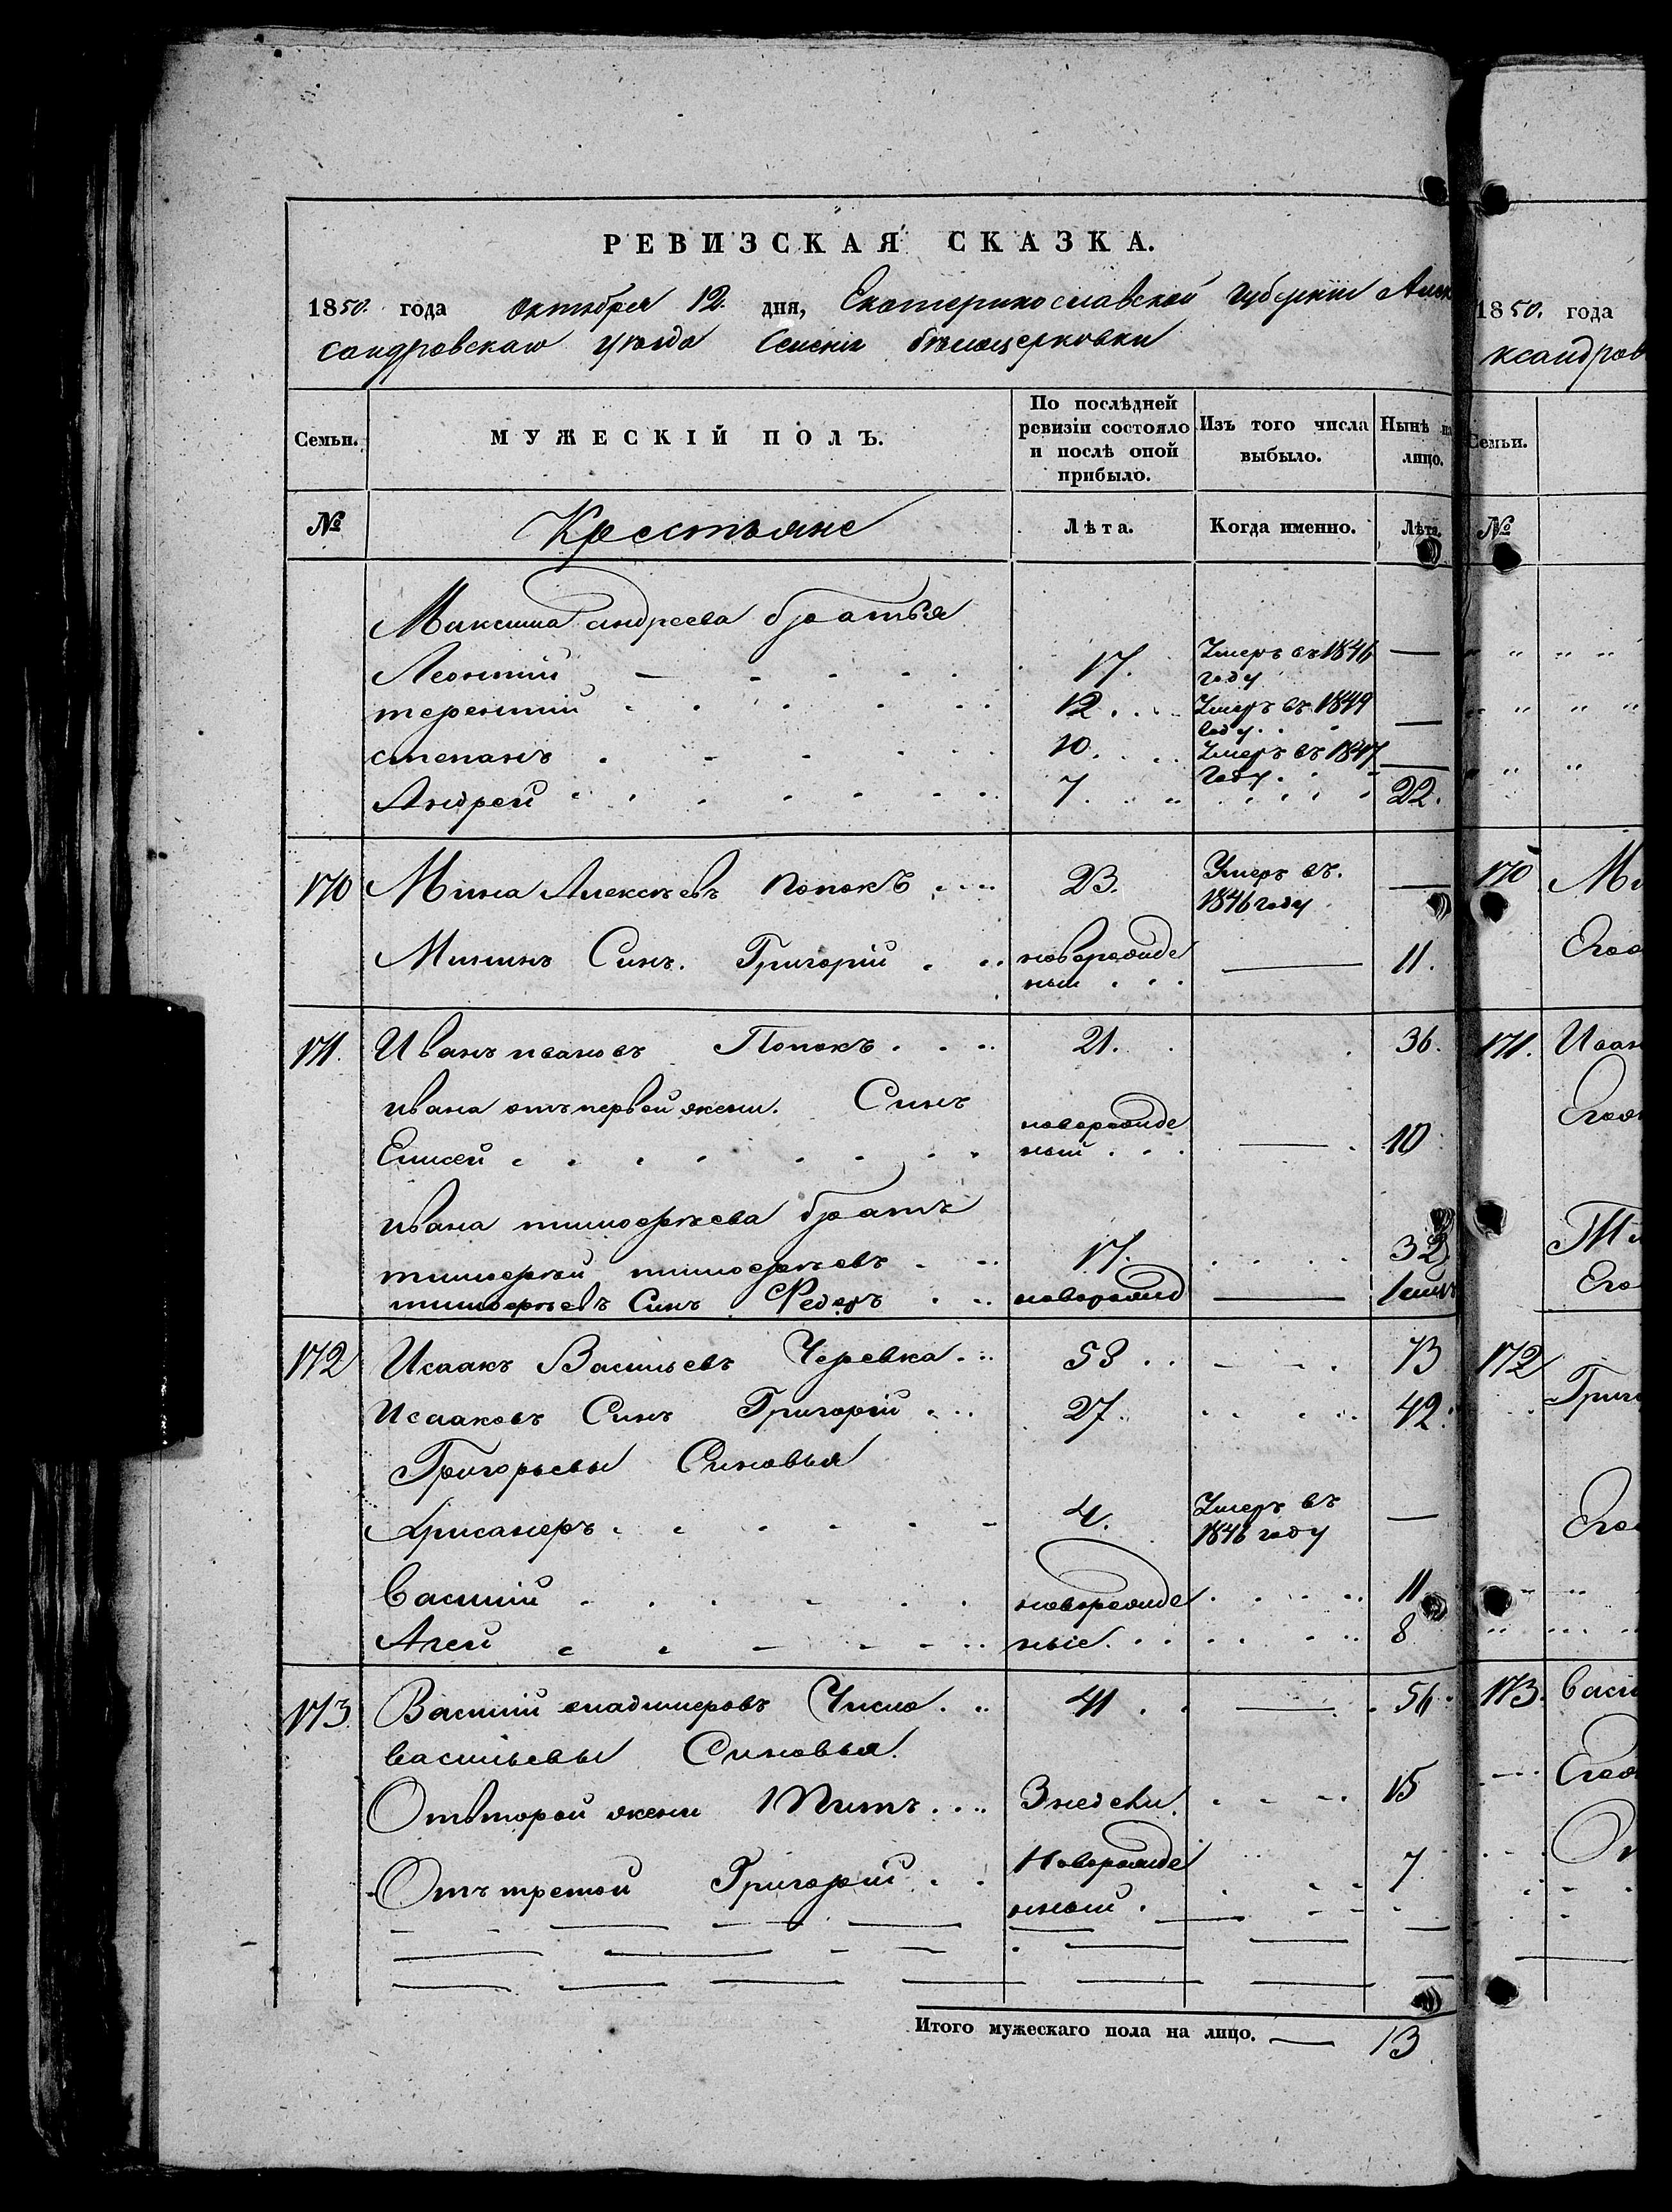 РЕВИЗСКАЯ СКАЗКА.
1850. года октября 12. дня, Екатеринославской губернии Алек
сандровскаго уѣзда Селенія бѣлоцерковки
Семьи. МУЖЕСКІЙ ПОЛЪ. По послѣдней ревизіи состояло и послѣ оной прибыло. Изъ того числа выбыло. Нынѣ на лицо.
№ Крестьяне Лѣта. Когда именно. Лѣта.
Максима андреева братья
Леонтий 17. Умеръ въ 1846 году —
терентий 12. Умеръ въ 1849 году —
степанъ 10. Умеръ въ 1847 году —
Андрей 7. 22.
170 Мина Алексѣевъ попокъ 23. Умеръ въ. 1846 году —
Мининъ Синъ. Григорій новорожде ный — 11.
171. Иванъ ивановъ Попокъ 21. 36.
ивана отъ первой жени. Синъ
Елисей новорожде ный — 10
ивана тимофѣева братъ
тимофѣй тимофѣевъ 17. 32
тимофѣевъ Синъ Федоръ новорожд — 1
172 Исаакъ Васильевъ Черевка 58 73
Исааковъ Синъ Григорій 27. 42.
Григорьевы Синовья
Хрисанфъ 4. Умеръ въ 1846 году —
Василій новорожде 11
Агей ныіе. 8
173. Василій владимеровъ Число 41 — 56
васильевы Синовья.
Отвторой жени Титъ 3 недели. 15
Отъ третой Григорій Новорожде нный 7
Итого мужескаго пола на лицо. — 13
1850. года
ксандров
Семьи.
№
170 Ми
Его
171. Иван
Его
Ти
Его
172
Григо
Его
173. Васи
Его
От